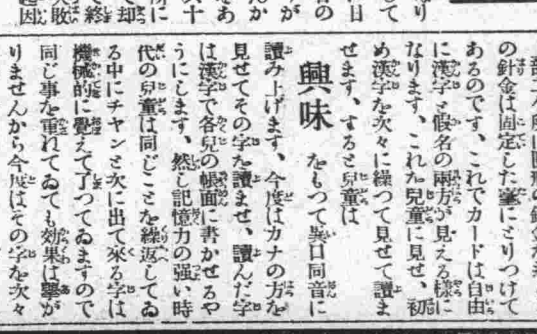 の針金は固定した臺にとりつけて
あるのです、これでカードは自由
に漢字と假名の兩方が見える樣に
なります、これを兒童に見せ、初
め漢字を次々に繰つて見せて讀ま
せます、すると兒童は
興味 をもつて異口同音に
讀み上げます、今度はカナの方を
見せてその字を讀ませ、讀んだ字
は漢字で各兒の帳面に書かせるや
うにします、然し記憶力の强い時
代の兒童は同じことを繰返してゐ
る中にチャンと次に出て來る字は
機械的に覺えて了つてゐますので
同じ事を重れてゐても効果は擧が
りませんから今度はその字を次々